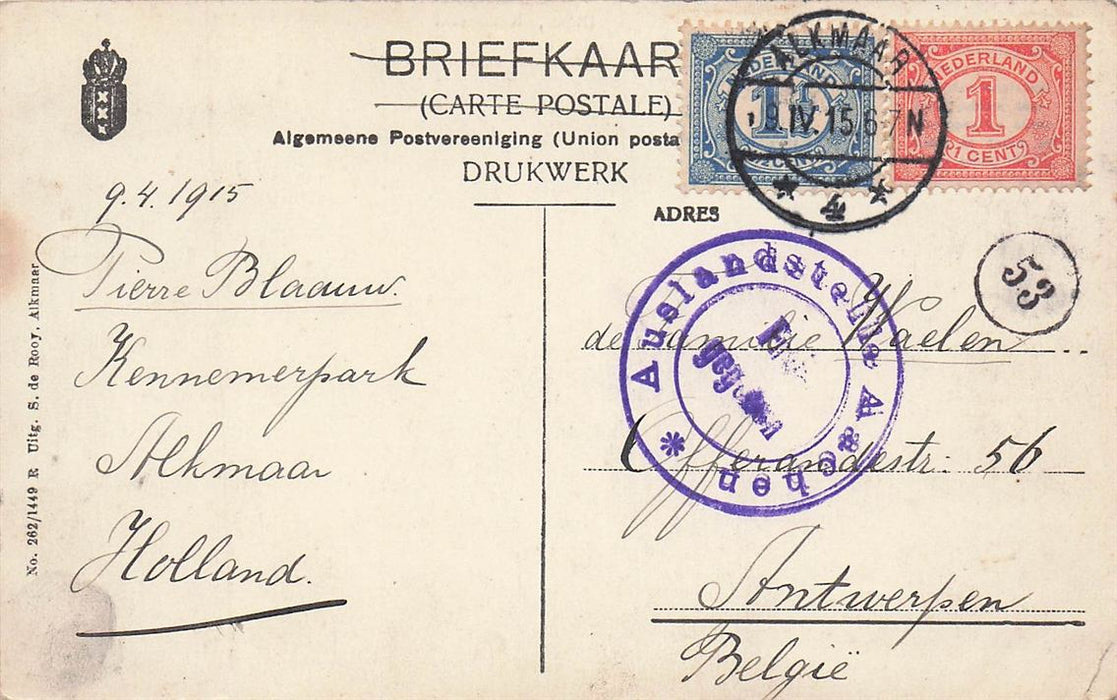 BRIEFKAAR
(CARTE POSTALE)
Algemeene Postvereeniging (Union posta
DRUKWERK
NEDERLAND
1½
CENT
NEDERLAND
1
1 CENT
ALKMAAR
9.IV.15.6-7N
4
ADRES
53
9.4.1915
Pierre Blaauw.
Kennemerpark
Alkmaar
Holland.
No. 262/1449 R Uitg. S. de Rooy, Alkmaar
Auslandstelle Aachen
de Familie Waelen
Offerandestr. 56
Antwerpen
België